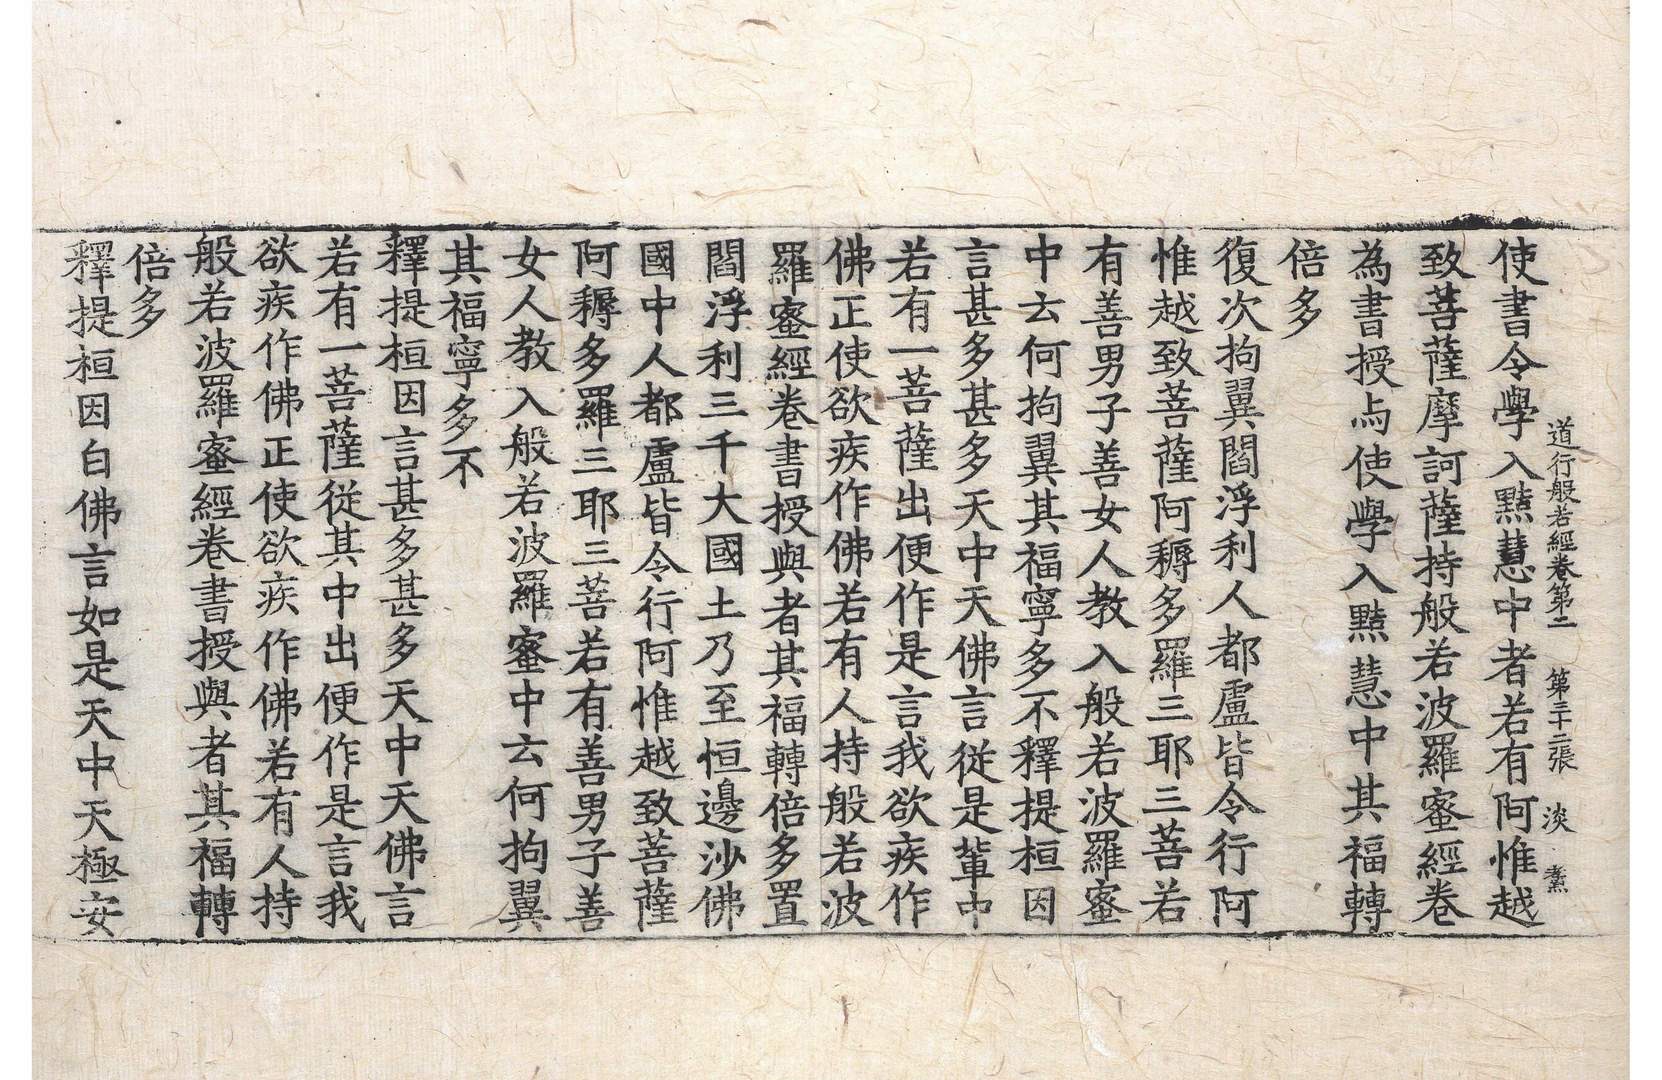 道行般若經卷第二 第三十二張 淡
使書令學入黠慧中者若有阿惟越
致菩薩摩訶薩持般若波羅蜜經卷
為書授与使學入黠慧中其福轉
倍多
復次拘翼閻浮利人都盧皆令行阿
惟越致菩薩阿耨多羅三耶三菩若
有善男子善女人教入般若波羅蜜
中云何拘翼其福寧多不釋提桓因
言甚多甚多天中天佛言從是輩中
若有一菩薩出便作是言我欲疾作
佛正使欲疾作佛若有人持般若波
羅蜜經卷書授與者其福轉倍多置
閻浮利三千大國土乃至恒邊沙佛
國中人都盧皆令行阿惟越致菩薩
阿耨多羅三耶三菩若有善男子善
女人教入般若波羅蜜中云何拘翼
其福寧多不
釋提桓因言甚多甚多天中天佛言
若有一菩薩從其中出便作是言我
欲疾作佛正使欲疾作佛若有人持
般若波羅蜜經卷書授與者其福轉
倍多
釋提桓因白佛言如是天中天極安